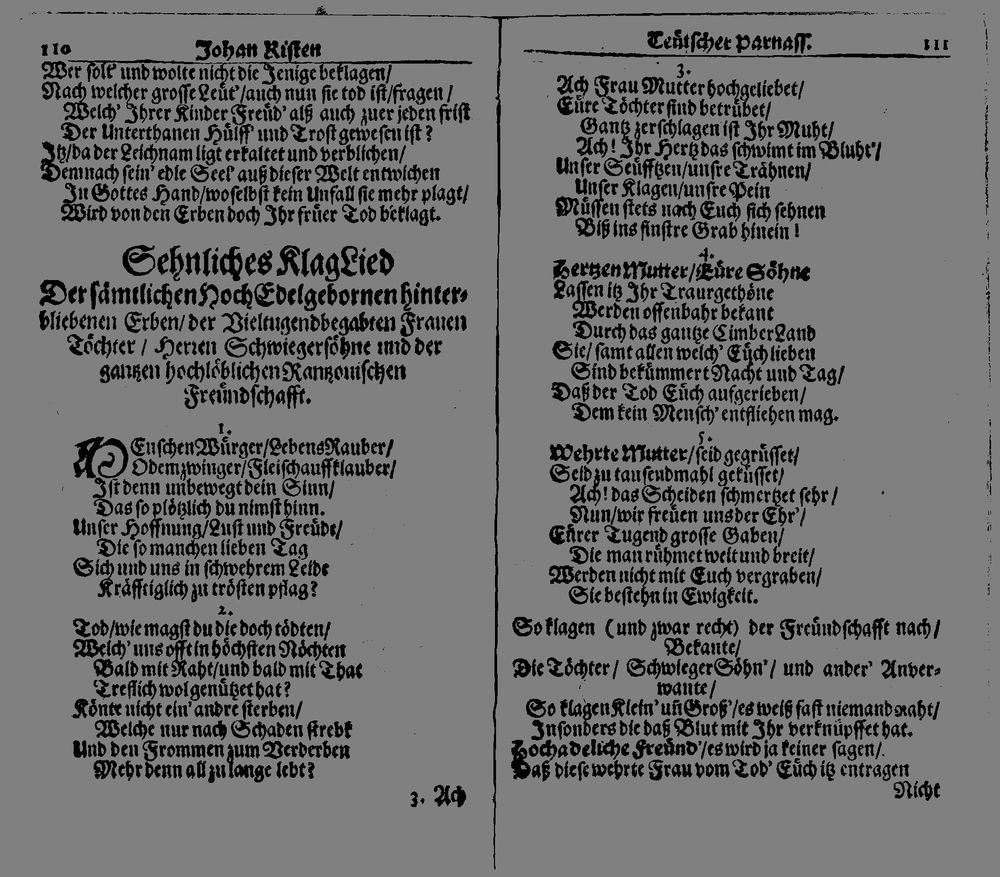 110 Johan Risten
Wer solt' und wolte nicht die Jenige beklagen/
Nach welcher grosse Leüt'/auch nun sie tod ist/fragen/
Welch' Ihrer Kinder Freüd' alß auch zuer jeden frist
Der Unterthanen Hülff' und Trost gewesen ist?
Itz/da der Leichnam ligt erkaltet und verblichen/
Demnach sein' edle Seel' auß dieser Welt entwichen
In Gottes Hand/woselbst kein Unfall sie mehr plagt/
Wird von den Erben doch Ihr früer Tod beklagt.
Sehnliches KlagLied
Der sämtlichen HochEdelgebornen hinter-
bliebenen Erben/ der Vieltugendbegabten Frauen
Töchter/ Herren Schwiegersöhne und der
gantzen hochlöblichen Rantzouischen
Freündschafft.
1.
MEnschenWürger/LebensRauber/
Odemzwinger/Fleischauffklauber/
Ist denn unbewegt dein Sinn/
Das so plötzlich du nimst hinn.
Unser Hoffnung/Lust und Freüde/
Die so manchen lieben Tag
Sich und uns in schwehrem Leide
Kräfftiglich zu trösten pflag?
2.
Tod/wie magst du die doch tödten/
Welch' uns offt in höchsten Nöchten
Bald mit Raht/und bald mit That
Treflich wol genützet hat?
Könte nicht ein' andre sterben/
Welche nur nach Schaden strebt
Und den Frommen zum Verderben
Mehr denn all zu lange lebt?
3. Ach
Teütscher Parnass. 111
3.
Ach Frau Mutter hochgeliebet/
Eüre Töchter sind betrübet/
Gantz zerschlagen ist Ihr Muht/
Ach! Ihr Hertz das schwimt im Bluht'/
Unser Seüfftzen/unsre Trähnen/
Unser Klagen/unsre Pein
Müssen stets nach Euch sich sehnen
Biß ins finstre Grab hinein!
4.
Hertzen Mutter/Eüre Söhne
Lassen itz Ihr Traurgethöne
Werden offenbahr bekant
Durch das gantze CimberLand
Sie/samt allen welch' Eüch lieben
Sind bekümmert Nacht und Tag/
Daß der Tod Eüch aufgerieben/
Dem kein Mensch' entfliehen mag.
5.
Wehrte Mutter/seid gegrüsset/
Seid zu tausendmahl geküsset/
Ach! das Scheiden schmertzet sehr/
Nun/wir freüen uns der Ehr'/
Eürer Tugend grosse Gaben/
Die man rühmet weit und breit/
Werden nicht mit Euch vergraben/
Sie bestehn in Ewigkeit.
So klagen (und zwar recht) der Freündschafft nach/
Bekante/
Die Töchter/ SchwiegerSöhn'/ und ander' Anver-
wante/
So klagen Klein' uñ Groß'/es weiß fast niemand raht/
Insonders die daß Blut mit Ihr verknüpffet hat.
Hochadeliche Freünd'/es wird ja keiner sagen/
Daß diese wehrte Frau vom Tod' Eüch itz entragen
Nicht